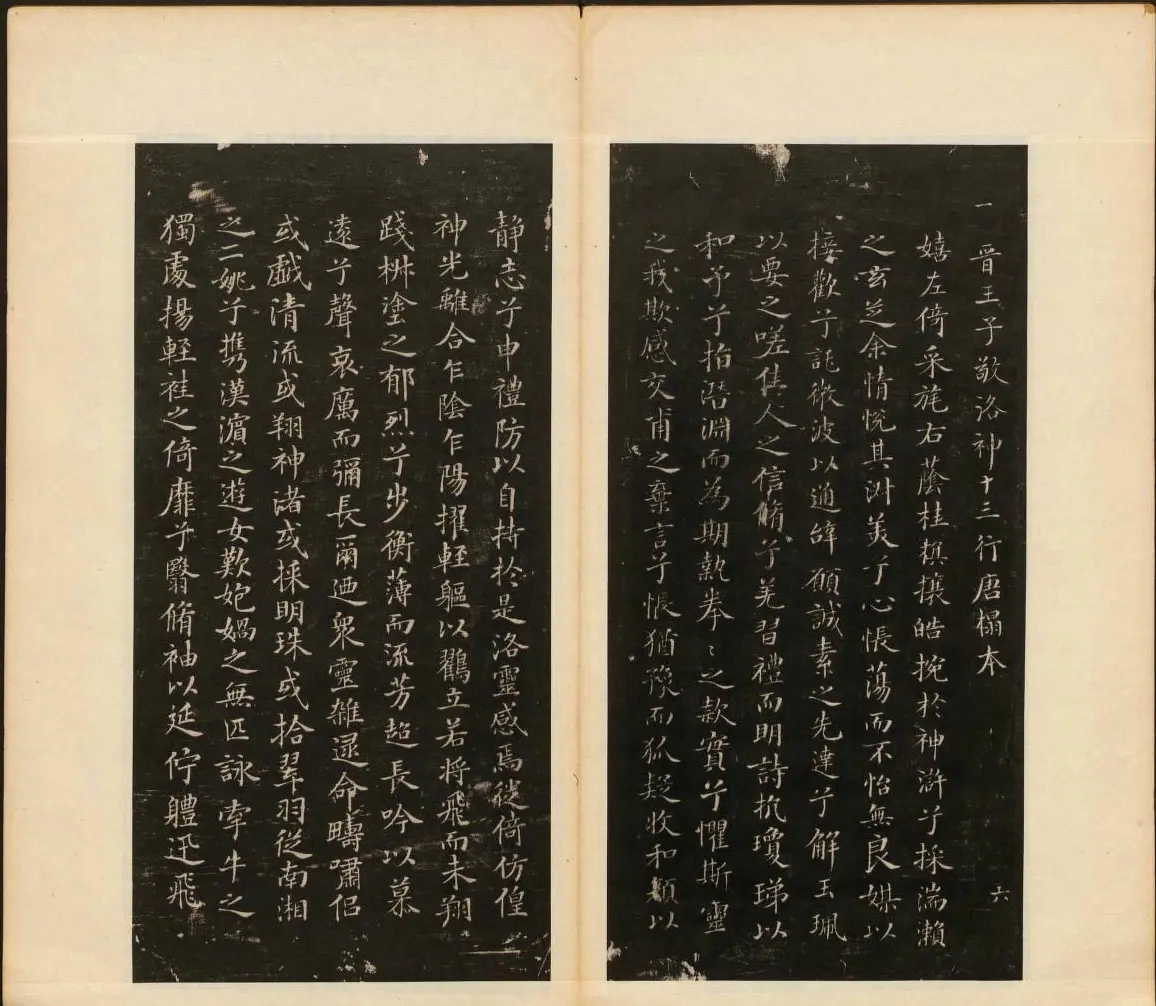 一 晉王子敬洛神十三行唐搨本 六
嬉左倚采旄右蔭桂旗攘皓捥於神滸兮採湍瀨
之玄芝余情悅其淋美兮心悵蕩而不怡無良媒以
接歡兮託微波以通辭願誠素之先達兮解玉珮
以要之嗟佳人之信脩兮羌習禮而明詩抗瓊珶以
和予兮指潛淵而為期執拳〻之款實兮懼斯靈
之我欺感交甫之棄言兮悵猶豫而狐疑收和顏以
靜志兮申禮防以自持於是洛靈感焉徙倚仿偟
神光離合乍陰乍陽擢輕軀以鶴立若將飛而未翔
踐椒塗之郁烈兮步衡薄而流芳超長吟以慕
遠兮聲哀厲而彌長爾迺眾靈雜遝命疇嘯侶
或戲清流或翔神渚或採明珠或拾翠羽從南湘
之二姚兮攜漢濱之遊女歎匏媧之無匹詠牽牛之
獨處揚輕袿之倚靡兮翳脩袖以延佇體迅飛